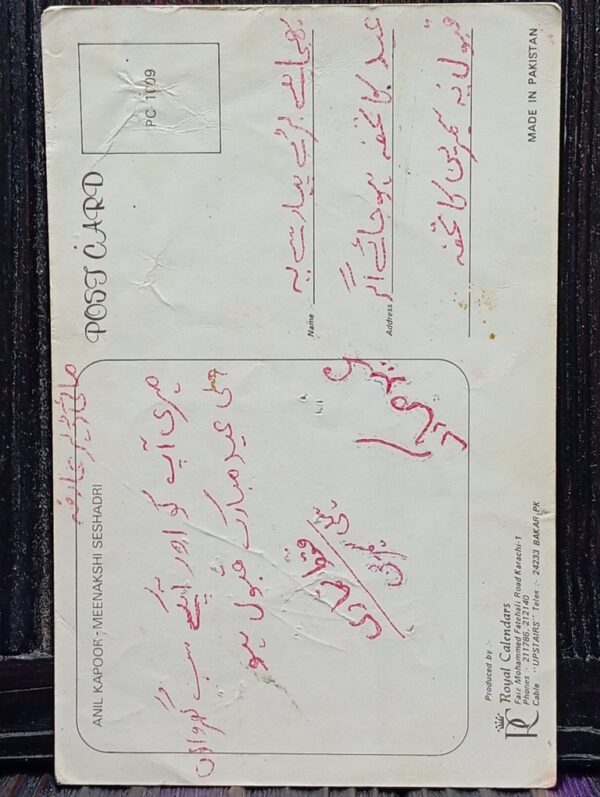 ANIL KAPOOR - MEENAKSHI SESHADRI
میری آپ کو اور آپکے سب گھر والوں
کی عید مبارک قبول ہو
POST CARD
PC 1009
بڑے پیار سے یہ
Name :-
عید کا تحفہ ہو جائے اگر
Address
قبول یہ کا تحفہ
Produced by :-
Royal Calendars
Faiz Mohammed Fatehali Road Karachi-1
Phones :- 211786, 212140
Cable :- "UPSTAIRS" Telex :- 24233 BAKAR PK
MADE IN PAKISTAN